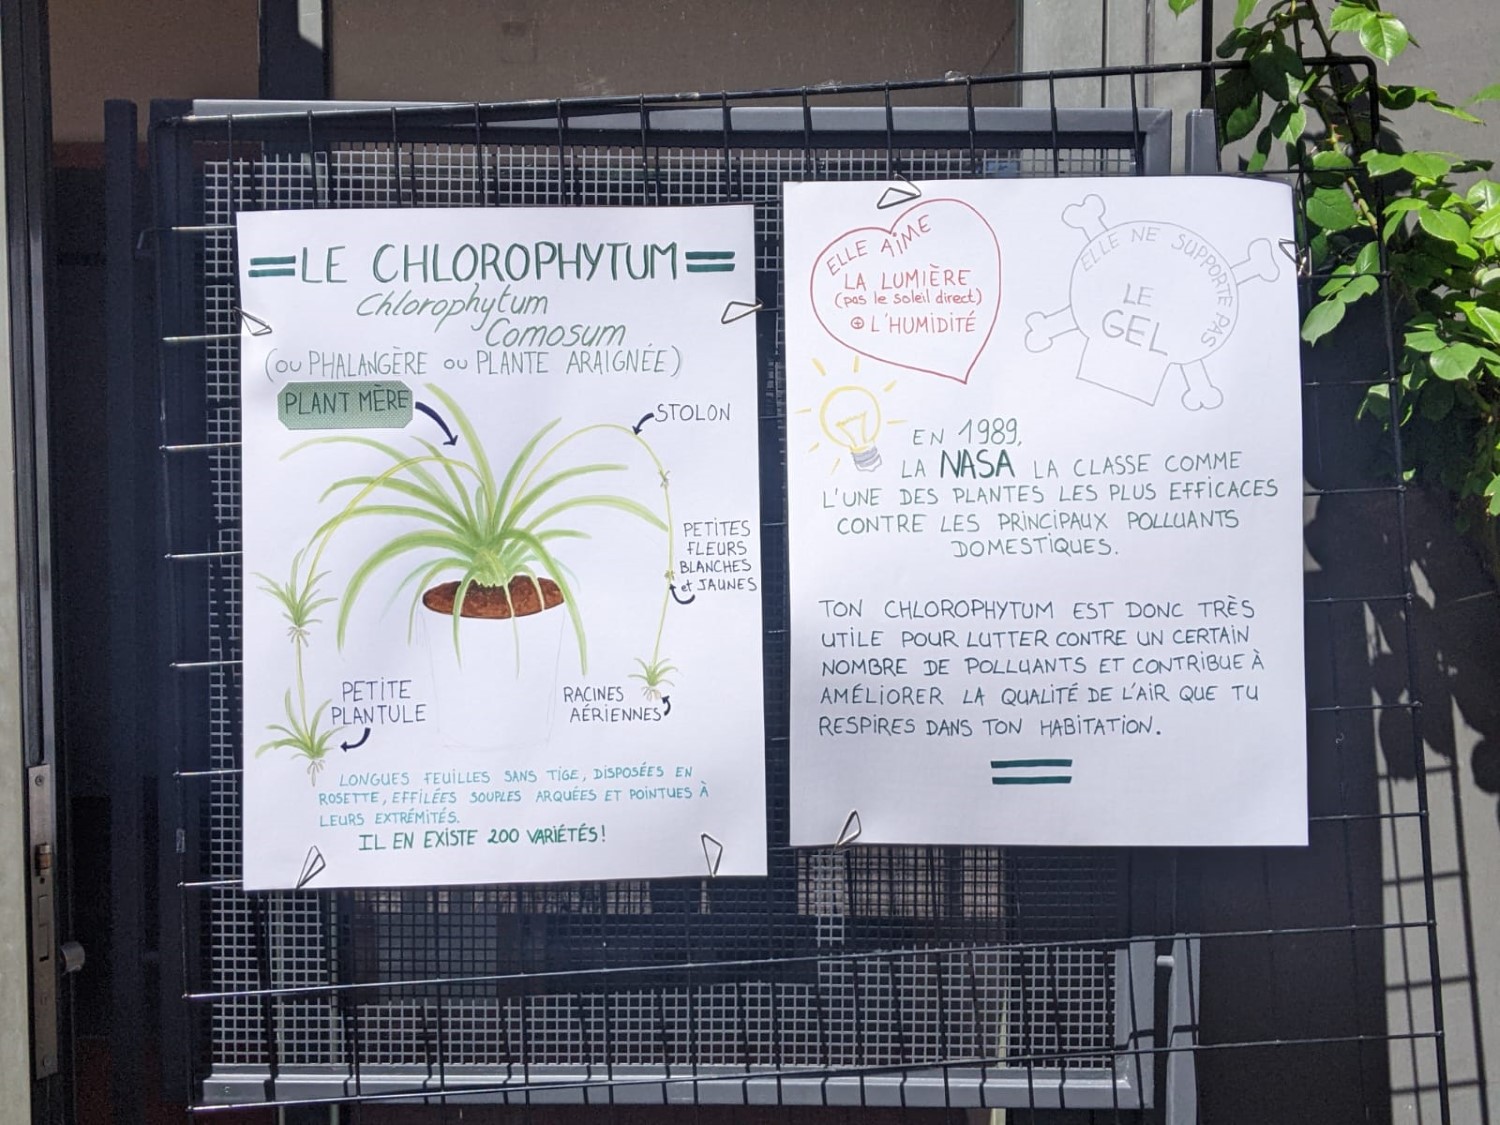 LE CHLOROPHYTUM
Chlorophytum
Comosum
(OU PHALANGÈRE OU PLANTE ARAIGNÉE)
PLANT MÈRE
STOLON
PETITES
FLEURS
BLANCHES
et JAUNES
PETITE
PLANTULE
RACINES
AÉRIENNES
LONGUES FEUILLES SANS TIGE, DISPOSÉES EN
ROSETTE, EFFILÉES SOUPLES ARQUÉES ET POINTUES À
LEURS EXTRÉMITÉS.
IL EN EXISTE 200 VARIÉTÉS!
ELLE AIME
LA LUMIÈRE
(pas le soleil direct)
⊕ L'HUMIDITÉ
ELLE NE SUPPORTE PAS
LE
GEL
EN 1989,
LA NASA LA CLASSE COMME
L'UNE DES PLANTES LES PLUS EFFICACES
CONTRE LES PRINCIPAUX POLLUANTS
DOMESTIQUES.
TON CHLOROPHYTUM EST DONC TRÈS
UTILE POUR LUTTER CONTRE UN CERTAIN
NOMBRE DE POLLUANTS ET CONTRIBUE À
AMÉLIORER LA QUALITÉ DE L'AIR QUE TU
RESPIRES DANS TON HABITATION.